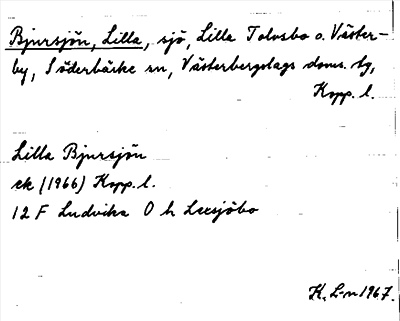 Bjursjön, Lilla, sjö, Lilla Tolvsbo o. Väster-
by, Söderbärke sn, Västerbergslags doms. tg,
Kopp. l.
Lilla Bjursjön
ek (1966) Kopp. l.
12 F Ludvika 0 h Lersjöbo
K. L-n 1967.